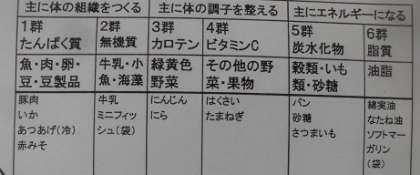 主に体の組織をつくる
主に体の調子を整える
主にエネルギーになる
1群
たんぱく質
2群
無機質
3群
カロテン
4群
ビタミンC
5群
炭水化物
6群
脂質
魚・肉・卵・
豆・豆製品
牛乳・小
魚・海藻
緑黄色
野菜
その他の野
菜・果物
穀類・いも
類・砂糖
油脂
豚肉
いか
あつあげ(冷)
赤みそ
牛乳
ミニフィッ
シュ(袋)
にんじん
にら
はくさい
たまねぎ
パン
砂糖
さつまいも
綿実油
なたね油
ソフトマー
ガリン
(袋)